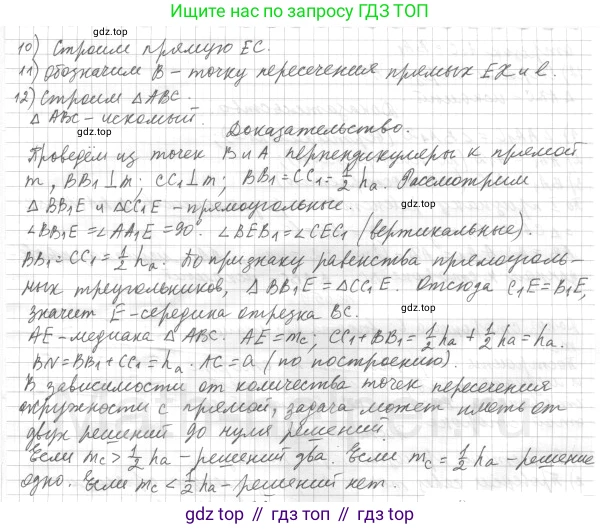 Ищите нас по запросу ГДЗ ТОП
10) Строим прямую EC.
gdz.top
11) Обозначим B – точку пересечения прямых EX и l.
12) Строим △ABC.
△ ABC – искомый.
gdz.top
Доказательство.
Проведём из точек B и A перпендикуляры к прямой
m, BB₁⊥m; CC₁⊥m; BB₁=CC₁=½ hₐ. Рассмотрим
gdz.top
△ BB₁E и △CC₁E – прямоугольные.
∠BB₁E=∠AA₁E=90°. ∠BEB₁=∠CEC₁ (вертикальные).
BB₁=CC₁=½ hₐ. По признаку равенства прямоуголь-
ных треугольников, △ BB₁E=△CC₁E. Отсюда C₁E=B₁E,
gdz.top
значит E – середина отрезка BC.
AE – медиана △ ABC. AE=mc; CC₁+BB₁=½hₐ+½hₐ=hₐ.
BN=BB₁+CC₁=hₐ. AC=a (по построению).
gdz.top
В зависимости от количества точек пересечения
окружности с прямой, задача может иметь от
двух решений до нуля решений.
Если mc>½ hₐ – решений два. Если mc=½ hₐ – решение
одно. Если mc<½hₐ – решений нет.
gdz.top
gdz.top // gdz.top // gdz.top